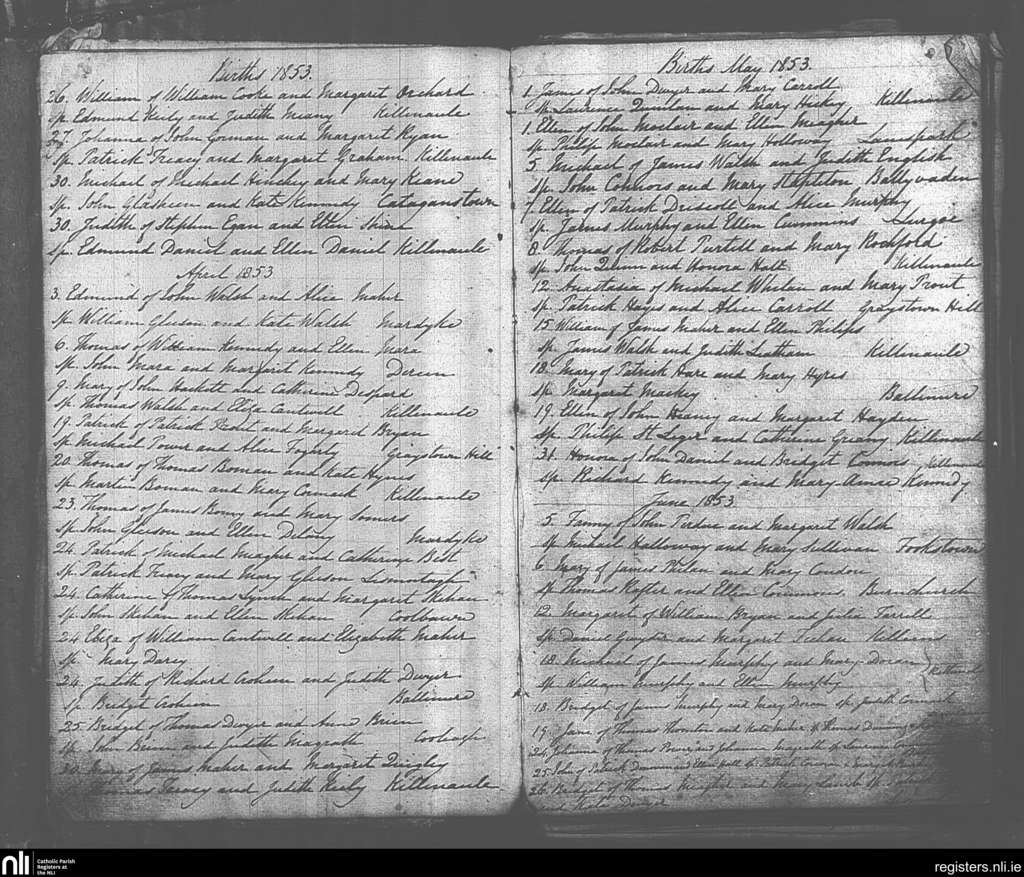 Births 1853.
26. William of William Cooke and Margaret Orchard
sp. Edmund Kiely and Judith Meany Killenaule
27. Johanna of John Gorman and Margaret Ryan
sp. Patrick Treacy and Margaret Graham Killenaule
30. Michael of Michael Hinchey and Mary Keane
sp. John Glasheen and Kate Kennedy Cataganstown
30. Judith of Stephen Egan and Ellen
sp. Edmund Daniel and Ellen Daniel Killenaule
April 1853
3. Edmund of John Walsh and Alice Maher
sp. William Gleeson and Kate Walsh Mardyke
6. Thomas of William Kennedy and Ellen Mara
sp. John Mara and Margaret Kennedy Dereen
9. Mary of John Hackett and Catherine Despard
sp. Thomas Walsh and Eliza Cantwell Killenaule
19. Patrick of Patrick Prout and Margaret Bryan
sp. Michael Power and Alice Fogerty Graystown Hill
20. Thomas of Thomas Boman and Kate Hynes
sp. Martin Boman and Mary Cormack Killenaule
23. Thomas of James and Mary Somers
sp. John Gleeson and Ellen Delany Mardyke
24. Patrick of Michael Meagher and Catherine Best
sp. Patrick Treacy and Mary Gleeson Lismortagh
24. Catherine of Thomas Lynch and Margaret Mehan
sp. John Mehan and Ellen Mehan Coolbawn
24. Eliza of William Cantwell and Elizabeth Maher
sp. Mary Darcy
24. Judith of Richard Croheen and Judith Dwyer
sp. Bridget Croheen Ballinure
25. Bridget of Thomas Dwyer and Anne Brien
sp. John Brien and Judith Magrath Cooleagh
30. Mary of James Maher and Margaret Quigley
Thomas and Judith Kiely Killenaule
Births May 1853.
1. James of John Dwyer and Mary Carroll
sp. Laurence Quinlan and Mary Hickey Killenaule
1. Ellen of John Moclair and Ellen Meagher
sp. Philip Moclair and Mary Holloway Lanespark
5. Michael of James Walsh and Judith English
sp. John Connors and Mary Stapleton Ballyvaden
7. Ellen of Patrick Driscoll and Alice Murphy
sp. James Murphy and Ellen Cummins Lurgoe
8. Thomas of Robert Purtill and Mary Rochford
sp. John Quinn and Honora Holt Killenaule
12. Anastasia of Michael Whelan and Mary Prout
sp. Patrick Hays and Alice Carroll Graystown Hill
15. William of James Maher and Ellen Philips
sp. James Walsh and Judith Leatham Killenaule
18. Mary of Patrick Hare and Mary Hyres
sp. Margaret Mackey Ballinure
19. Ellen of John Heany and Margaret Hayden
sp. Philip St Leger and Catherine Greany Killenaule
31. Honora of John Daniel and Bridget Connors Killenaule
sp. Richard Kennedy and Mary Kennedy
June 1853
5. Fanny of John Perdue and Margaret Walsh
sp. Michael Halloway and Mary Sullivan Fookstown
6. Mary of James Phelan and Mary Condon
sp. Thomas Rafter and Ellen Commons Burnchurch
12. Margaret of William Bryan and Julia Farrell
sp. Daniel and Margaret
18. Michael of James Murphy and Mary Doran
sp. William Murphy and Ellen Murphy
18. Bridget of James Murphy and Mary Doran sp. Judith Cormack
19. Jane of Thomas Thornton and Kate Maher sp. Thomas
24. Johanna of Thomas Power and Johanna Magrath sp. Laurence
25. John of Patrick and Ellen Hall sp. Patrick
26. Bridget of Thomas Meagher and Mary sp. John
and Kate Dwyer
nli Catholic Parish
Registers at
the NLI
registers.nli.ie